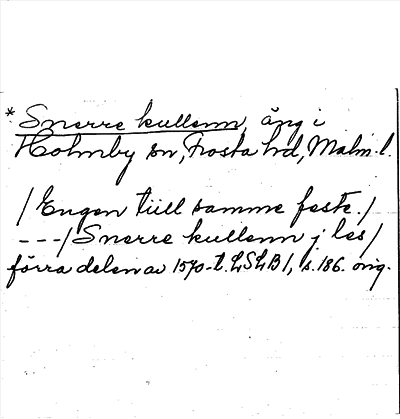 * Snerre kullenn, äng i
Holmby sn, Frosta hd, Malm. l.
/Engen till samme feste./
---/Snerre kullenn j les/
förra delen av 1570-t. LSLB 1, s. 186. orig.